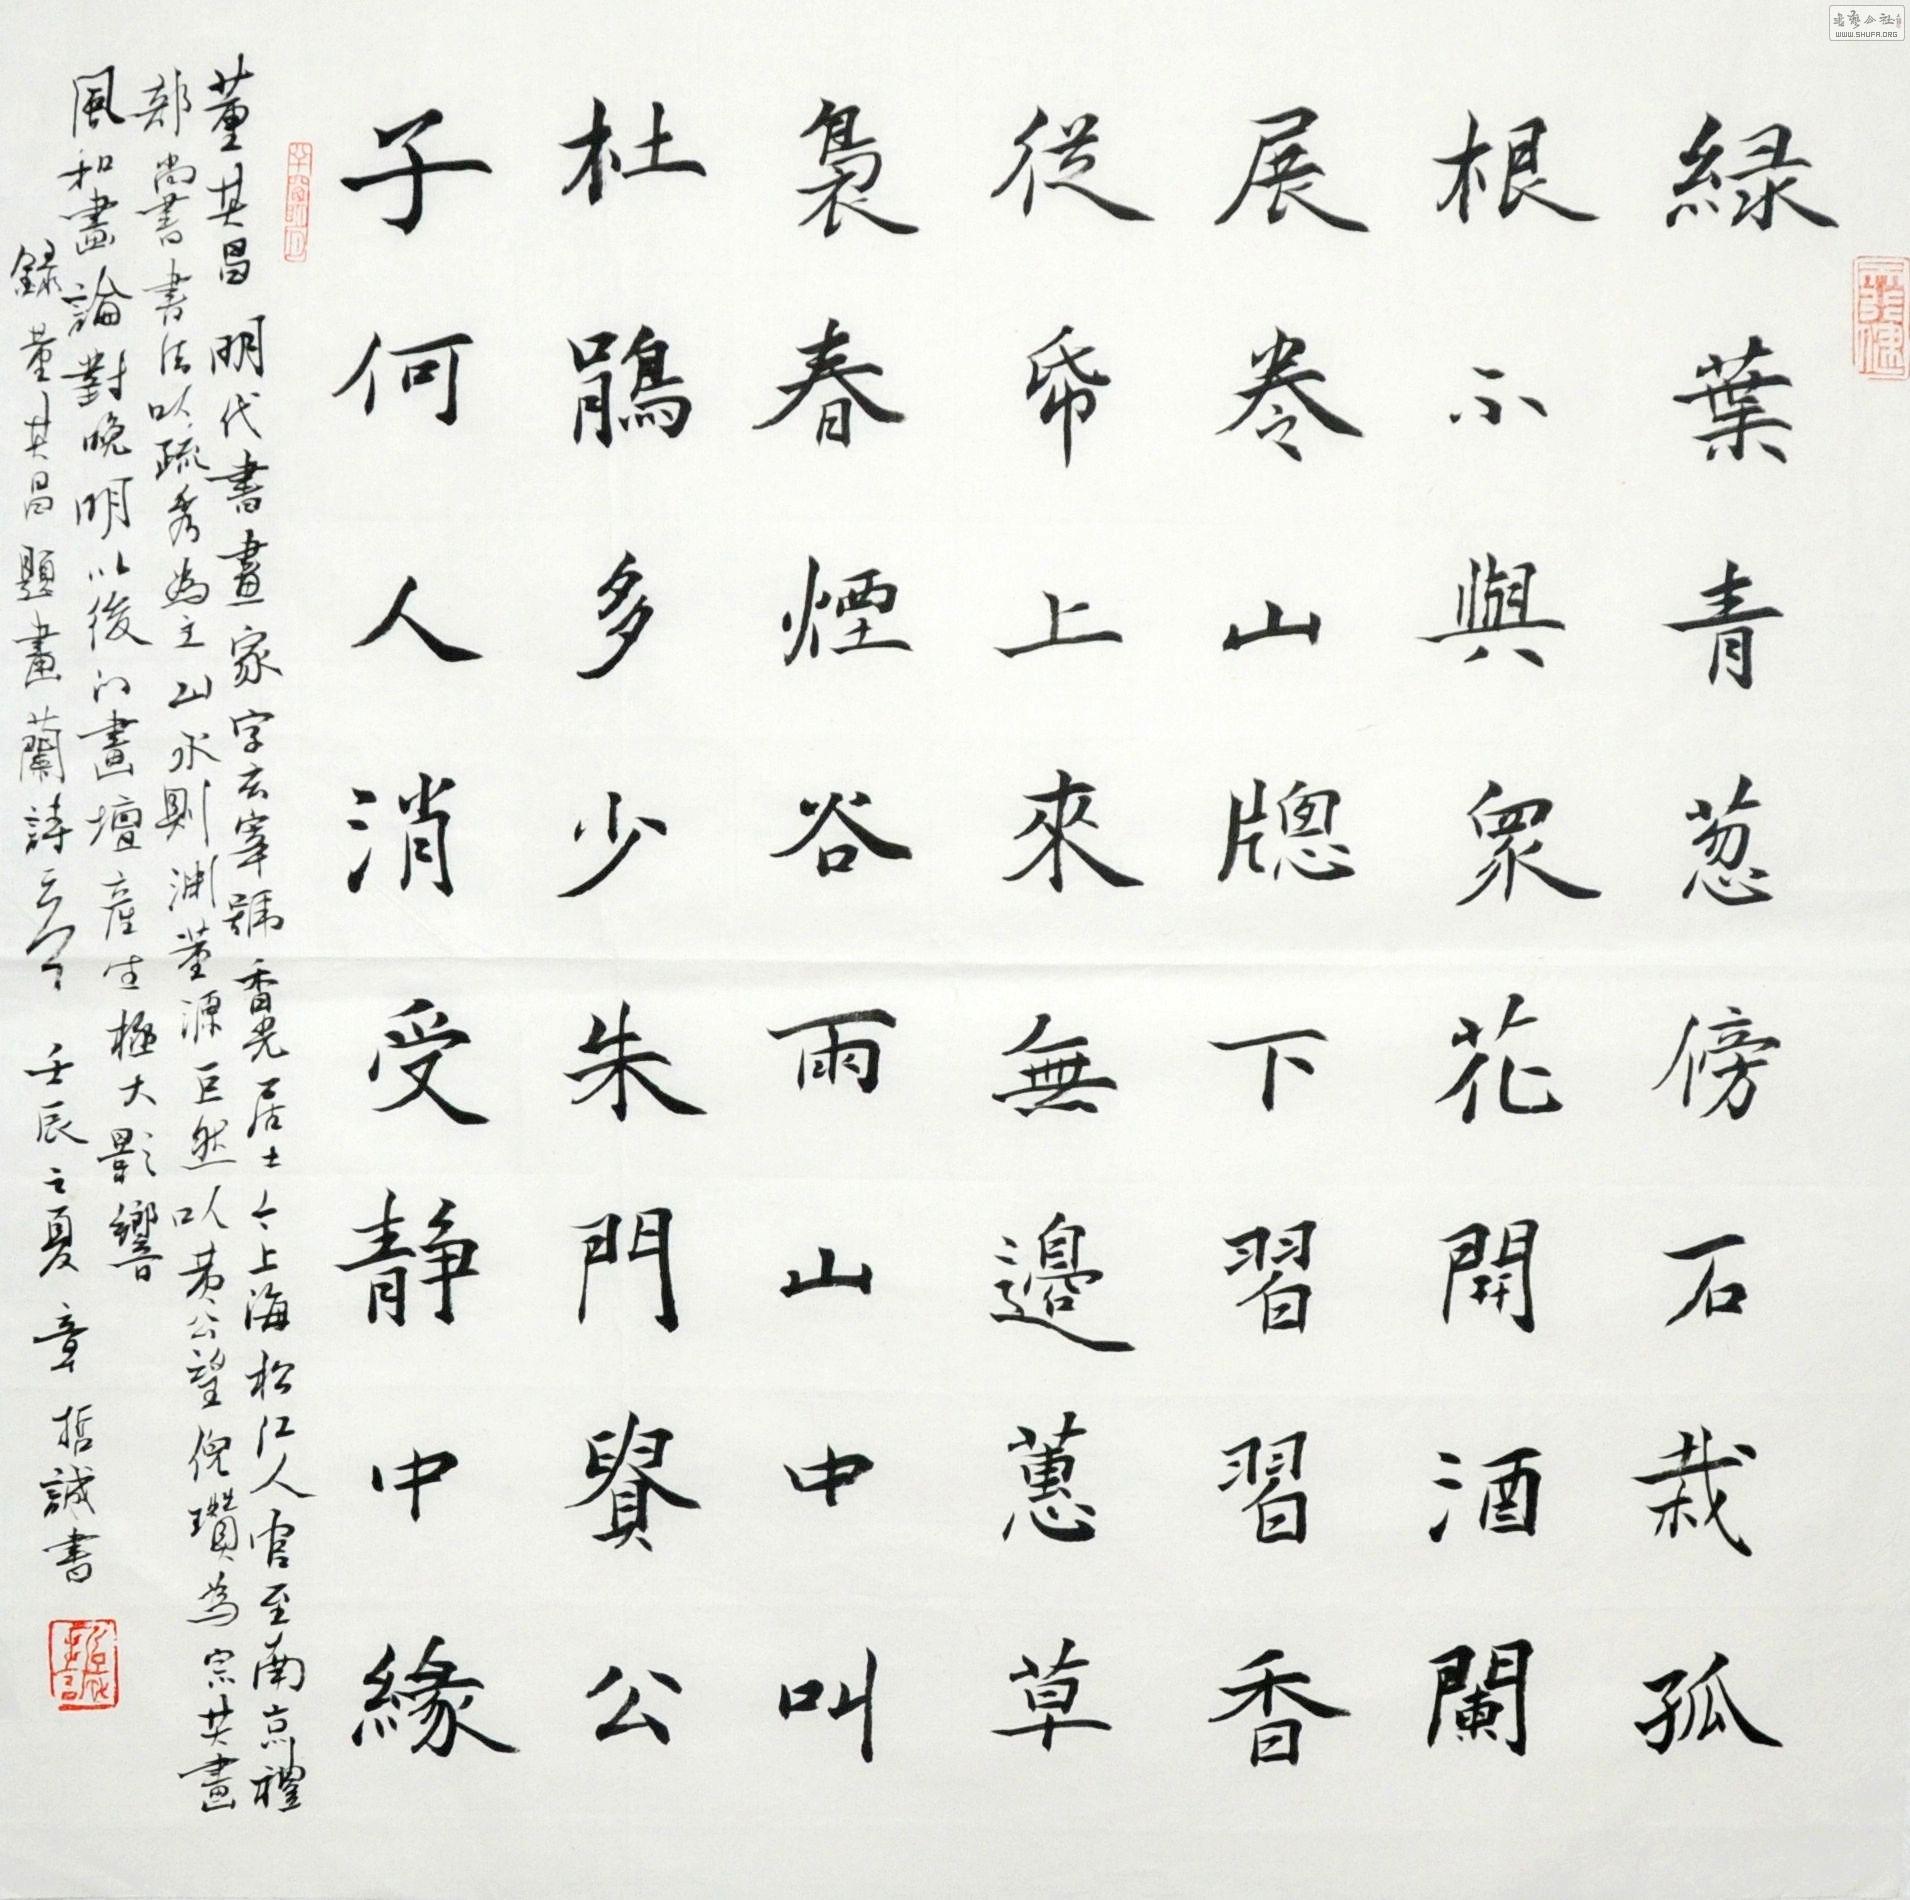 綠葉青葱傍石栽孤
根不與衆花開酒闌
展卷山牕下習習香
從帋上來無邊蕙草
裊春煙谷雨山中叫
杜鵑多少朱門貴公
子何人消受靜中緣
董其昌 明代書畫家字玄宰號香光居士今上海松江人官至南京禮
部尚書書法以疏秀為主山水則渊董源巨然以黄公望倪瓚為宗其畫
風和畫論對晚明以後的畫壇產生極大影響
錄董其昌題畫蘭詩二首 壬辰之夏 章哲誠書
書藝公社
WWW.SHUFA.ORG